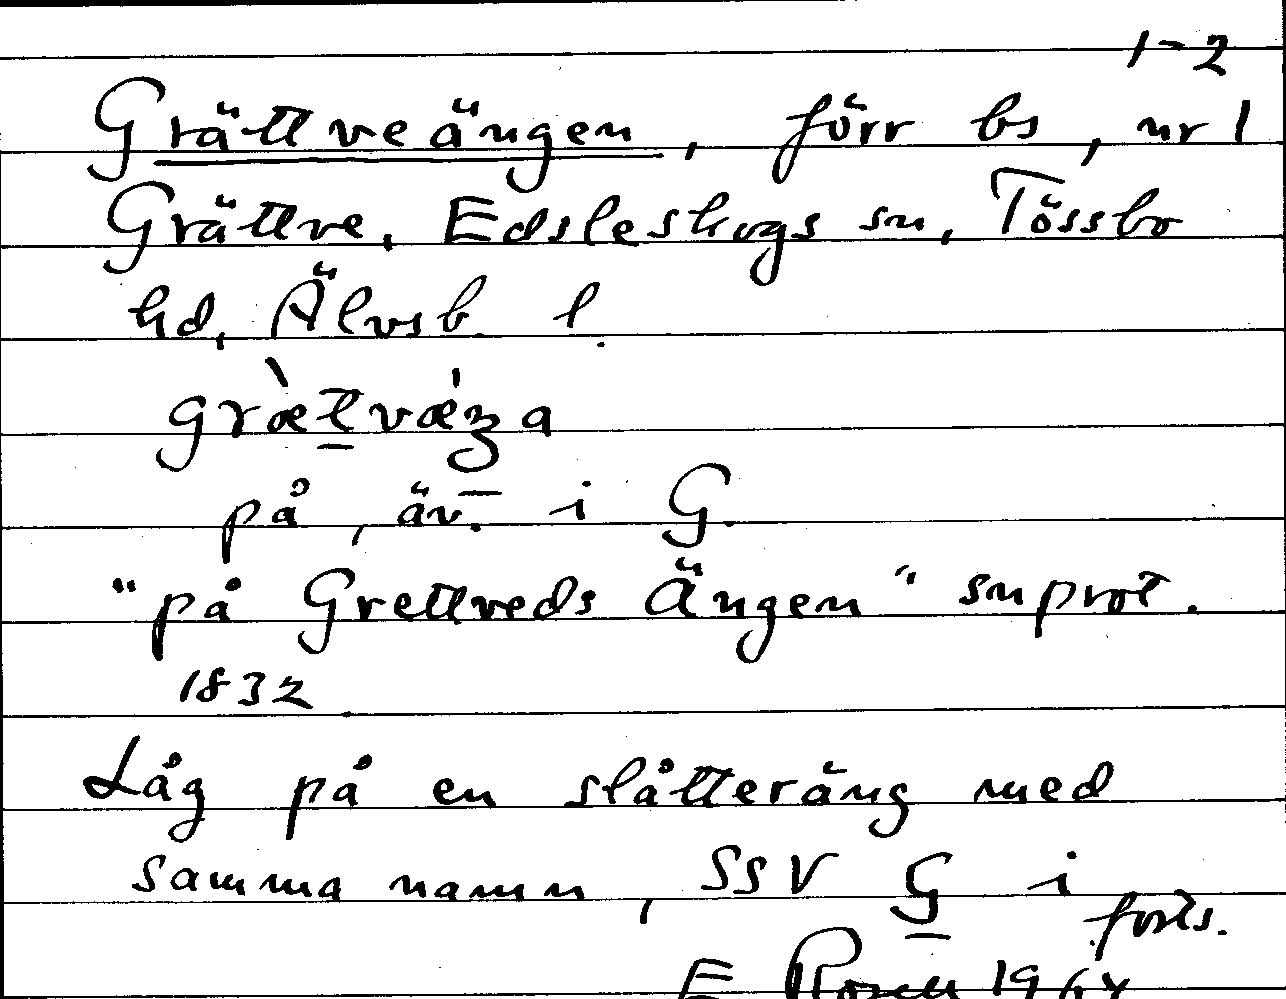 1-2
Grättveängen, förr bs, nr 1
Grättve, Edsleskogs sn, Tössbo
hd, Älvsb. l.
græ̀tvǽŋa
på, äv. i G.
"på Grettveds Ängen" snprot.
1832
Låg på en slåtteräng med
samma namn, SSV G i
forts.
E 1964